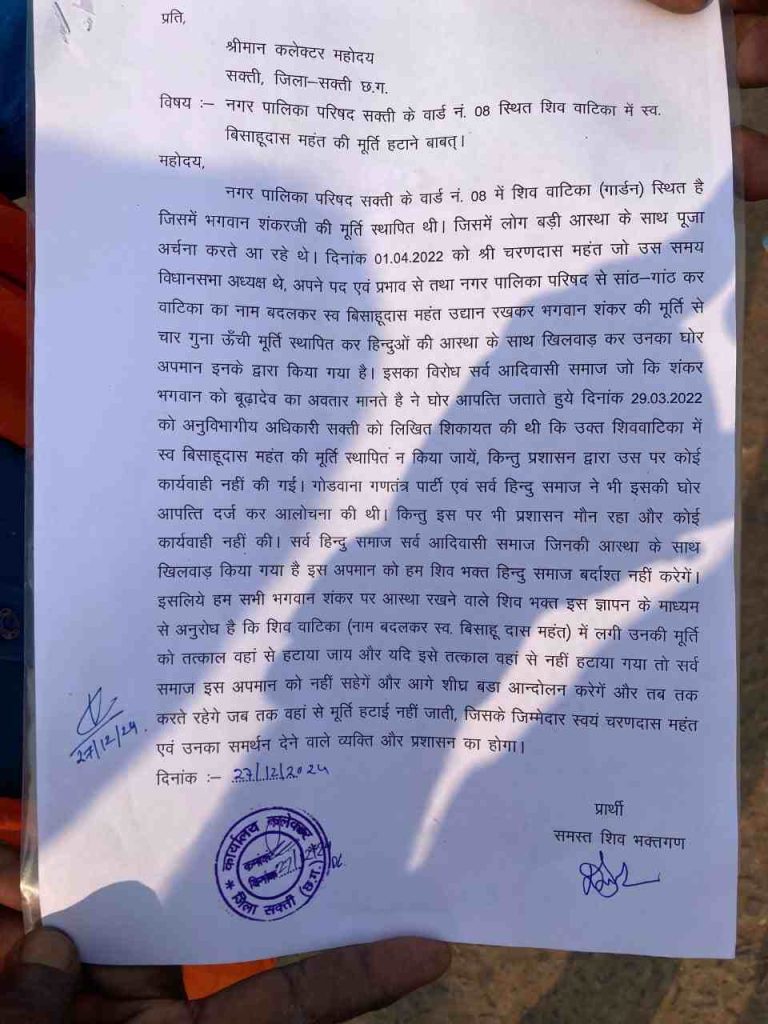 प्रति,
श्रीमान कलेक्टर महोदय
सक्ती, जिला–सक्ती छ.ग.
विषय :– नगर पालिका परिषद सक्ती के वार्ड नं. 08 स्थित शिव वाटिका में स्व.
बिसाहूदास महंत की मूर्ति हटाने बाबत्।
महोदय,
नगर पालिका परिषद सक्ती के वार्ड नं. 08 में शिव वाटिका (गार्डन) स्थित है
जिसमें भगवान शंकरजी की मूर्ति स्थापित थी। जिसमें लोग बड़ी आस्था के साथ पूजा
अर्चना करते आ रहे थे। दिनांक 01.04.2022 को श्री चरणदास महंत जो उस समय
विधानसभा अध्यक्ष थे, अपने पद एवं प्रभाव से तथा नगर पालिका परिषद से सांठ–गांठ कर
वाटिका का नाम बदलकर स्व बिसाहूदास महंत उद्यान रखकर भगवान शंकर की मूर्ति से
चार गुना ऊँची मूर्ति स्थापित कर हिन्दुओं की आस्था के साथ खिलवाड़ कर उनका घोर
अपमान इनके द्वारा किया गया है। इसका विरोध सर्व आदिवासी समाज जो कि शंकर
भगवान को बूढ़ादेव का अवतार मानते है ने घोर आपत्ति जताते हुये दिनांक 29.03.2022
को अनुविभागीय अधिकारी सक्ती को लिखित शिकायत की थी कि उक्त शिववाटिका में
स्व बिसाहूदास महंत की मूर्ति स्थापित न किया जायें, किन्तु प्रशासन द्वारा उस पर कोई
कार्यवाही नहीं की गई। गोडवाना गणतंत्र पार्टी एवं सर्व हिन्दु समाज ने भी इसकी घोर
आपत्ति दर्ज कर आलोचना की थी। किन्तु इस पर भी प्रशासन मौन रहा और कोई
कार्यवाही नहीं की। सर्व हिन्दु समाज सर्व आदिवासी समाज जिनकी आस्था के साथ
खिलवाड़ किया गया है इस अपमान को हम शिव भक्त हिन्दु समाज बर्दाश्त नहीं करेगें।
इसलिये हम सभी भगवान शंकर पर आस्था रखने वाले शिव भक्त इस ज्ञापन के माध्यम
से अनुरोध है कि शिव वाटिका (नाम बदलकर स्व. बिसाहू दास महंत) में लगी उनकी मूर्ति
को तत्काल वहां से हटाया जाय और यदि इसे तत्काल वहां से नहीं हटाया गया तो सर्व
समाज इस अपमान को नहीं सहेगें और आगे शीघ्र बडा आन्दोलन करेगें और तब तक
करते रहेगे जब तक वहां से मूर्ति हटाई नहीं जाती, जिसके जिम्मेदार स्वयं चरणदास महंत
एवं उनका समर्थन देने वाले व्यक्ति और प्रशासन का होगा।
27/12/24.
दिनांक :– 27/12/2024
प्रार्थी
समस्त शिव भक्तगण
कार्यालय कलेक्टर
दिनांक
जिला सक्ती (छ.ग.)